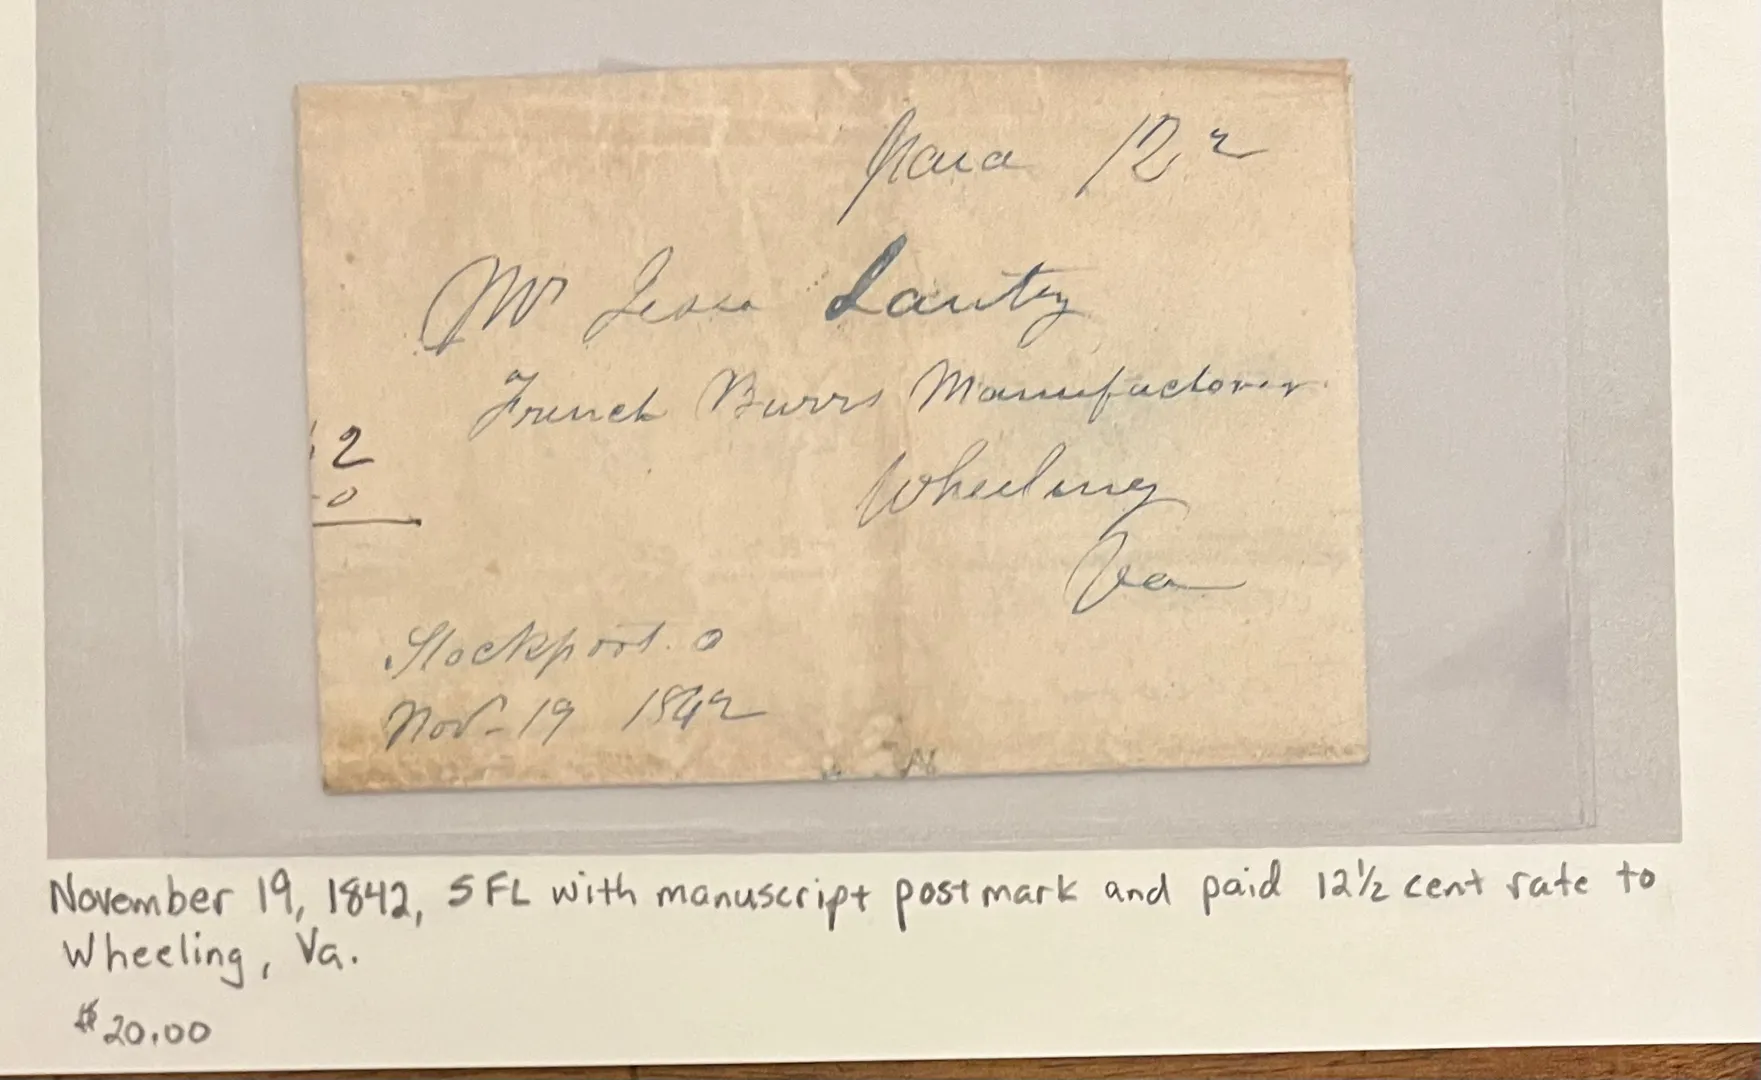 Paid 12 2
Mr Jesse Lantz
French Burrs Manufactorer
Wheeling
Va
2
0
Stockport. O
Nov- 19 1842
November 19, 1842, SFL with manuscript postmark and paid 12½ cent rate to
Wheeling, Va.
$20.00